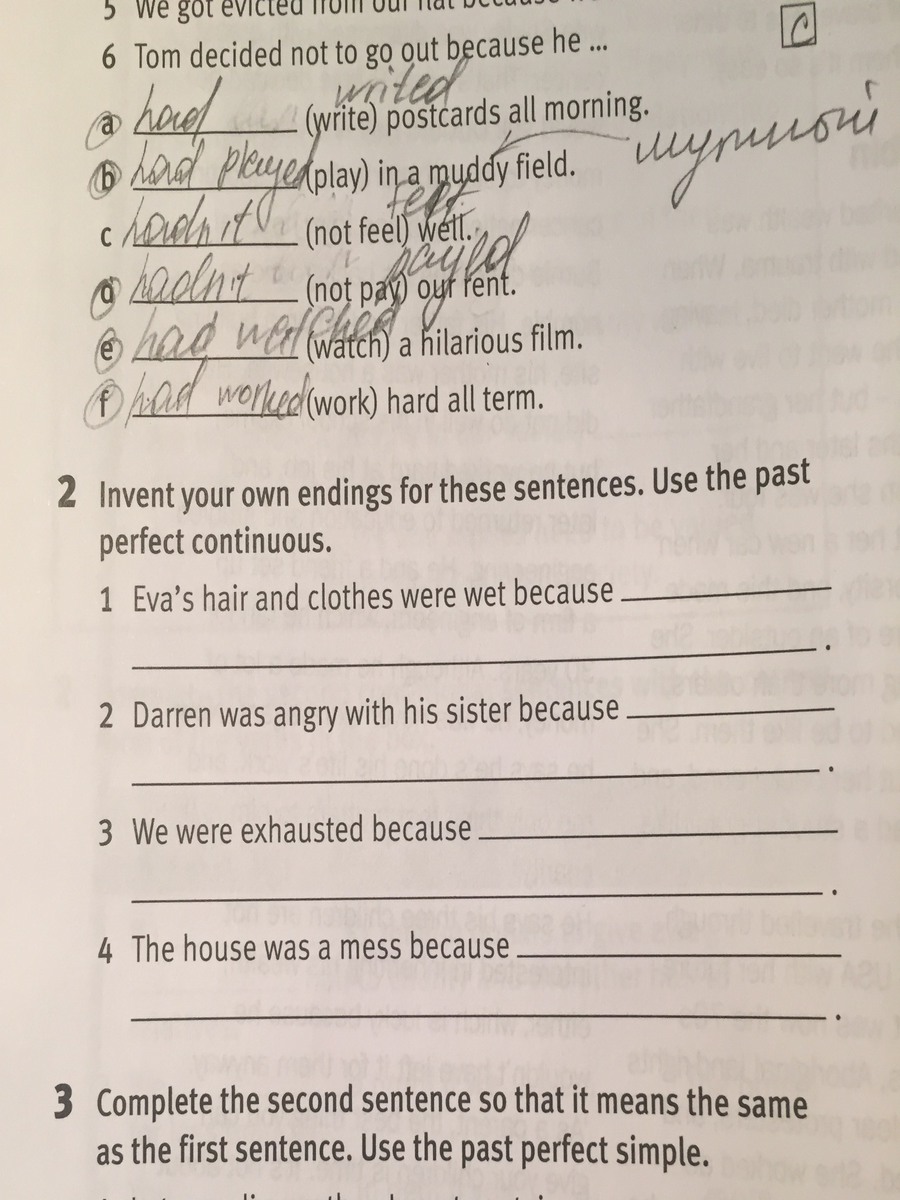 5 We got evicted from our flat because
6 Tom decided not to go out because he ... c
writed
a had (write) postcards all morning.
шутной
b had played (play) in a muddy field.
felt
c hadn't (not feel) well.
payed
d hadn't (not pay) our rent.
e had watched (watch) a hilarious film.
f had worked (work) hard all term.
2 Invent your own endings for these sentences. Use the past
perfect continuous.
1 Eva's hair and clothes were wet because
.
2 Darren was angry with his sister because
.
3 We were exhausted because
.
4 The house was a mess because
.
3 Complete the second sentence so that it means the same
as the first sentence. Use the past perfect simple.